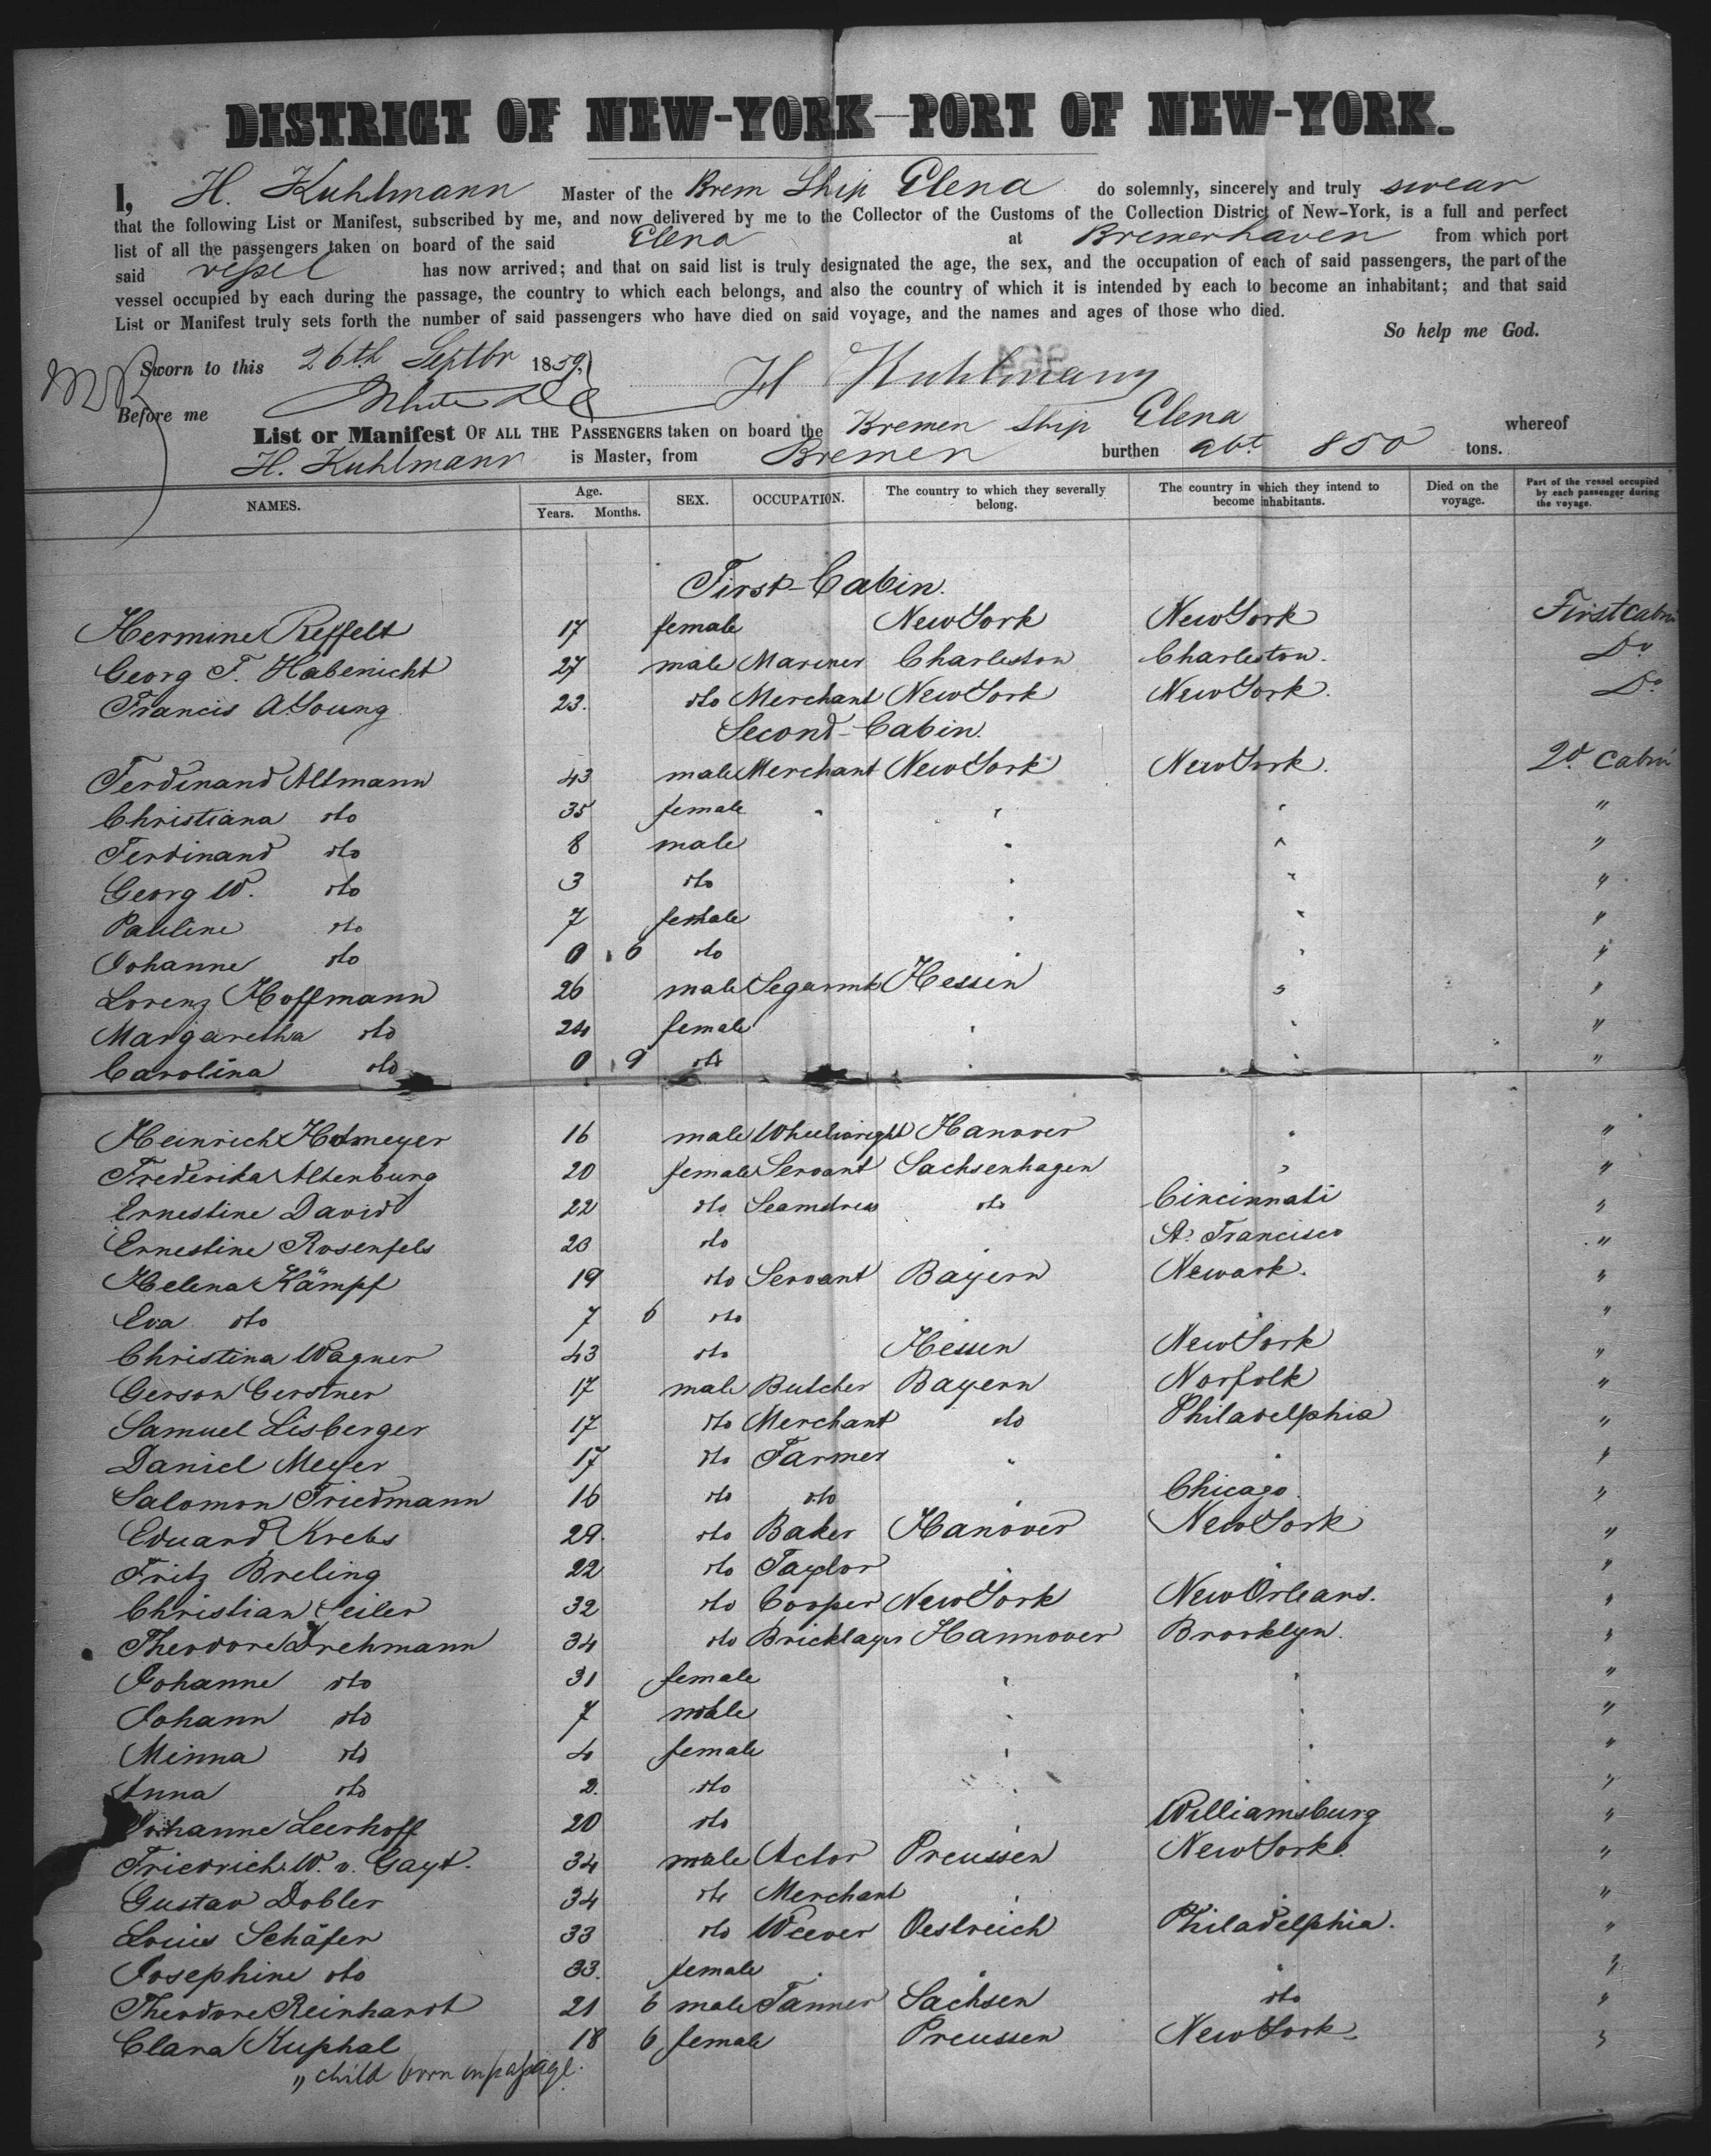 DISTRICT OF NEW-YORK—PORT OF NEW-YORK.
I, H. Kuhlmann Master of the Brem Ship Elena do solemnly, sincerely and truly swear
that the following List or Manifest, subscribed by me, and now delivered by me to the Collector of the Customs of the Collection District of New-York, is a full and perfect
list of all the passengers taken on board of the said Elena at Bremerhaven from which port
said vessel has now arrived; and that on said list is truly designated the age, the sex, and the occupation of each of said passengers, the part of the
vessel occupied by each during the passage, the country to which each belongs, and also the country of which it is intended by each to become an inhabitant; and that said
List or Manifest truly sets forth the number of said passengers who have died on said voyage, and the names and ages of those who died.
So help me God.
Sworn to this 26th Septbr 1859,
H Kuhlmann
Before me White
List or Manifest OF ALL THE PASSENGERS taken on board the Bremen Ship Elena whereof
H. Kuhlmann is Master, from Bremen burthen abt 850 tons.
NAMES. Age. Years. Months. SEX. OCCUPATION. The country to which they severally belong. The country in which they intend to become inhabitants. Died on the voyage. Part of the vessel occupied by each passenger during the voyage.
First-Cabin.
Hermine Reffelt 17 female New York New York First cabin
Georg F. Habenicht 27 male Mariner Charleston Charleston. Do
Francis A. Young 23. dto Merchant New York New York. Do
Second-Cabin.
Ferdinand Altmann 43 male Merchant New York New York. 2d. Cabin
Christiana dto 35 female " " " "
Ferdinand dto 8 male " " "
Georg W. dto 3 dto " " "
Pauline dto 7 female " " "
Johanne dto 0 , 6 dto " " "
Lorenz Hoffmann 26 male Segarmk Hessin " "
Margaretha dto 24 female " " "
Carolina dto 0 , 9 dto " " "
Heinrich Hotmeyer 16 male Wheelwright Hanover " "
Frederika Altenburg 20 female Servant Sachsenhagen " "
Ernestine David 22 dto Seamdress dto Cincinnati "
Ernestine Rosenfels 23 dto " St. Francisco "
Helena Kämpf 19 dto Servant Bayern Newark. "
Eva dto 7 6 dto " " "
Christina Wagner 43 dto Hessen New York "
Gerson Gerstner 17 male Butcher Bayern Norfolk "
Samuel Lisberger 17 dto Merchant do Philadelphia "
Daniel Meyer 17 dto Farmer " " "
Salomon Friedmann 16 dto dto " Chicago. "
Eduard Krebs 29. dto Baker Hanover New York "
Fritz Breling 22 dto Taylor " " "
Christian Seiler 32 dto Cooper New York New Orleans. "
Theodore Drehmann 34 dto Bricklayer Hannover Brooklyn. "
Johanne dto 31 female " " "
Johann dto 7 male " " "
Minna dto 4 female " " "
Anna dto 2. dto " " "
Johanne Leerhoff 20 dto " Williamsburg "
Friedrich W. v. Gayt. 34 male Actor Preussen New York. "
Gustav Dobler 34 dto Merchant " " "
Louis Schäfer 33 dto Weever Oestreich Philadelphia. "
Josephine dto 33. female " " "
Theodore Reinhardt 21 6 male Tanner Sachsen dto "
Clara Kuphal 18 6 female Preussen New York. "
" child born on passage.